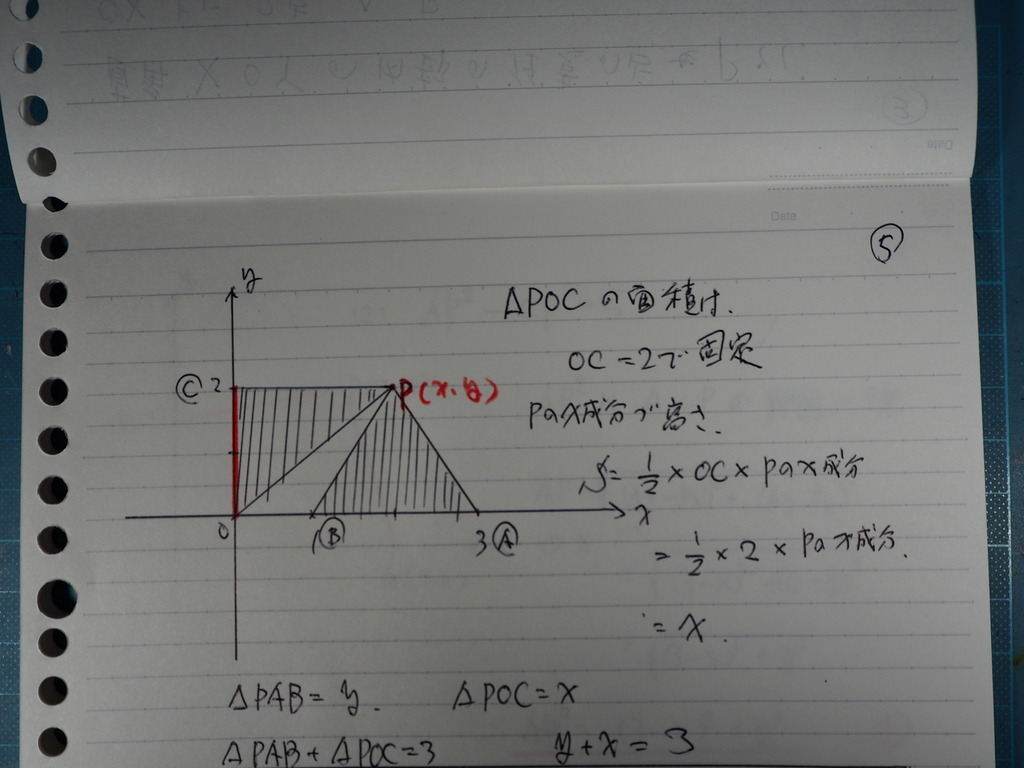 Date
⑤
y
△POCの面積は、
OC=2で固定
Ⓒ 2 P(x,y)
Pのx成分が高さ、
S=1/2×OC×Pのx成分
0 1 Ⓑ 3 Ⓐ x
=1/2×2×Pのx成分.
=x.
△PAB=y. △POC=x
△PAB+△POC=3 y+x=3